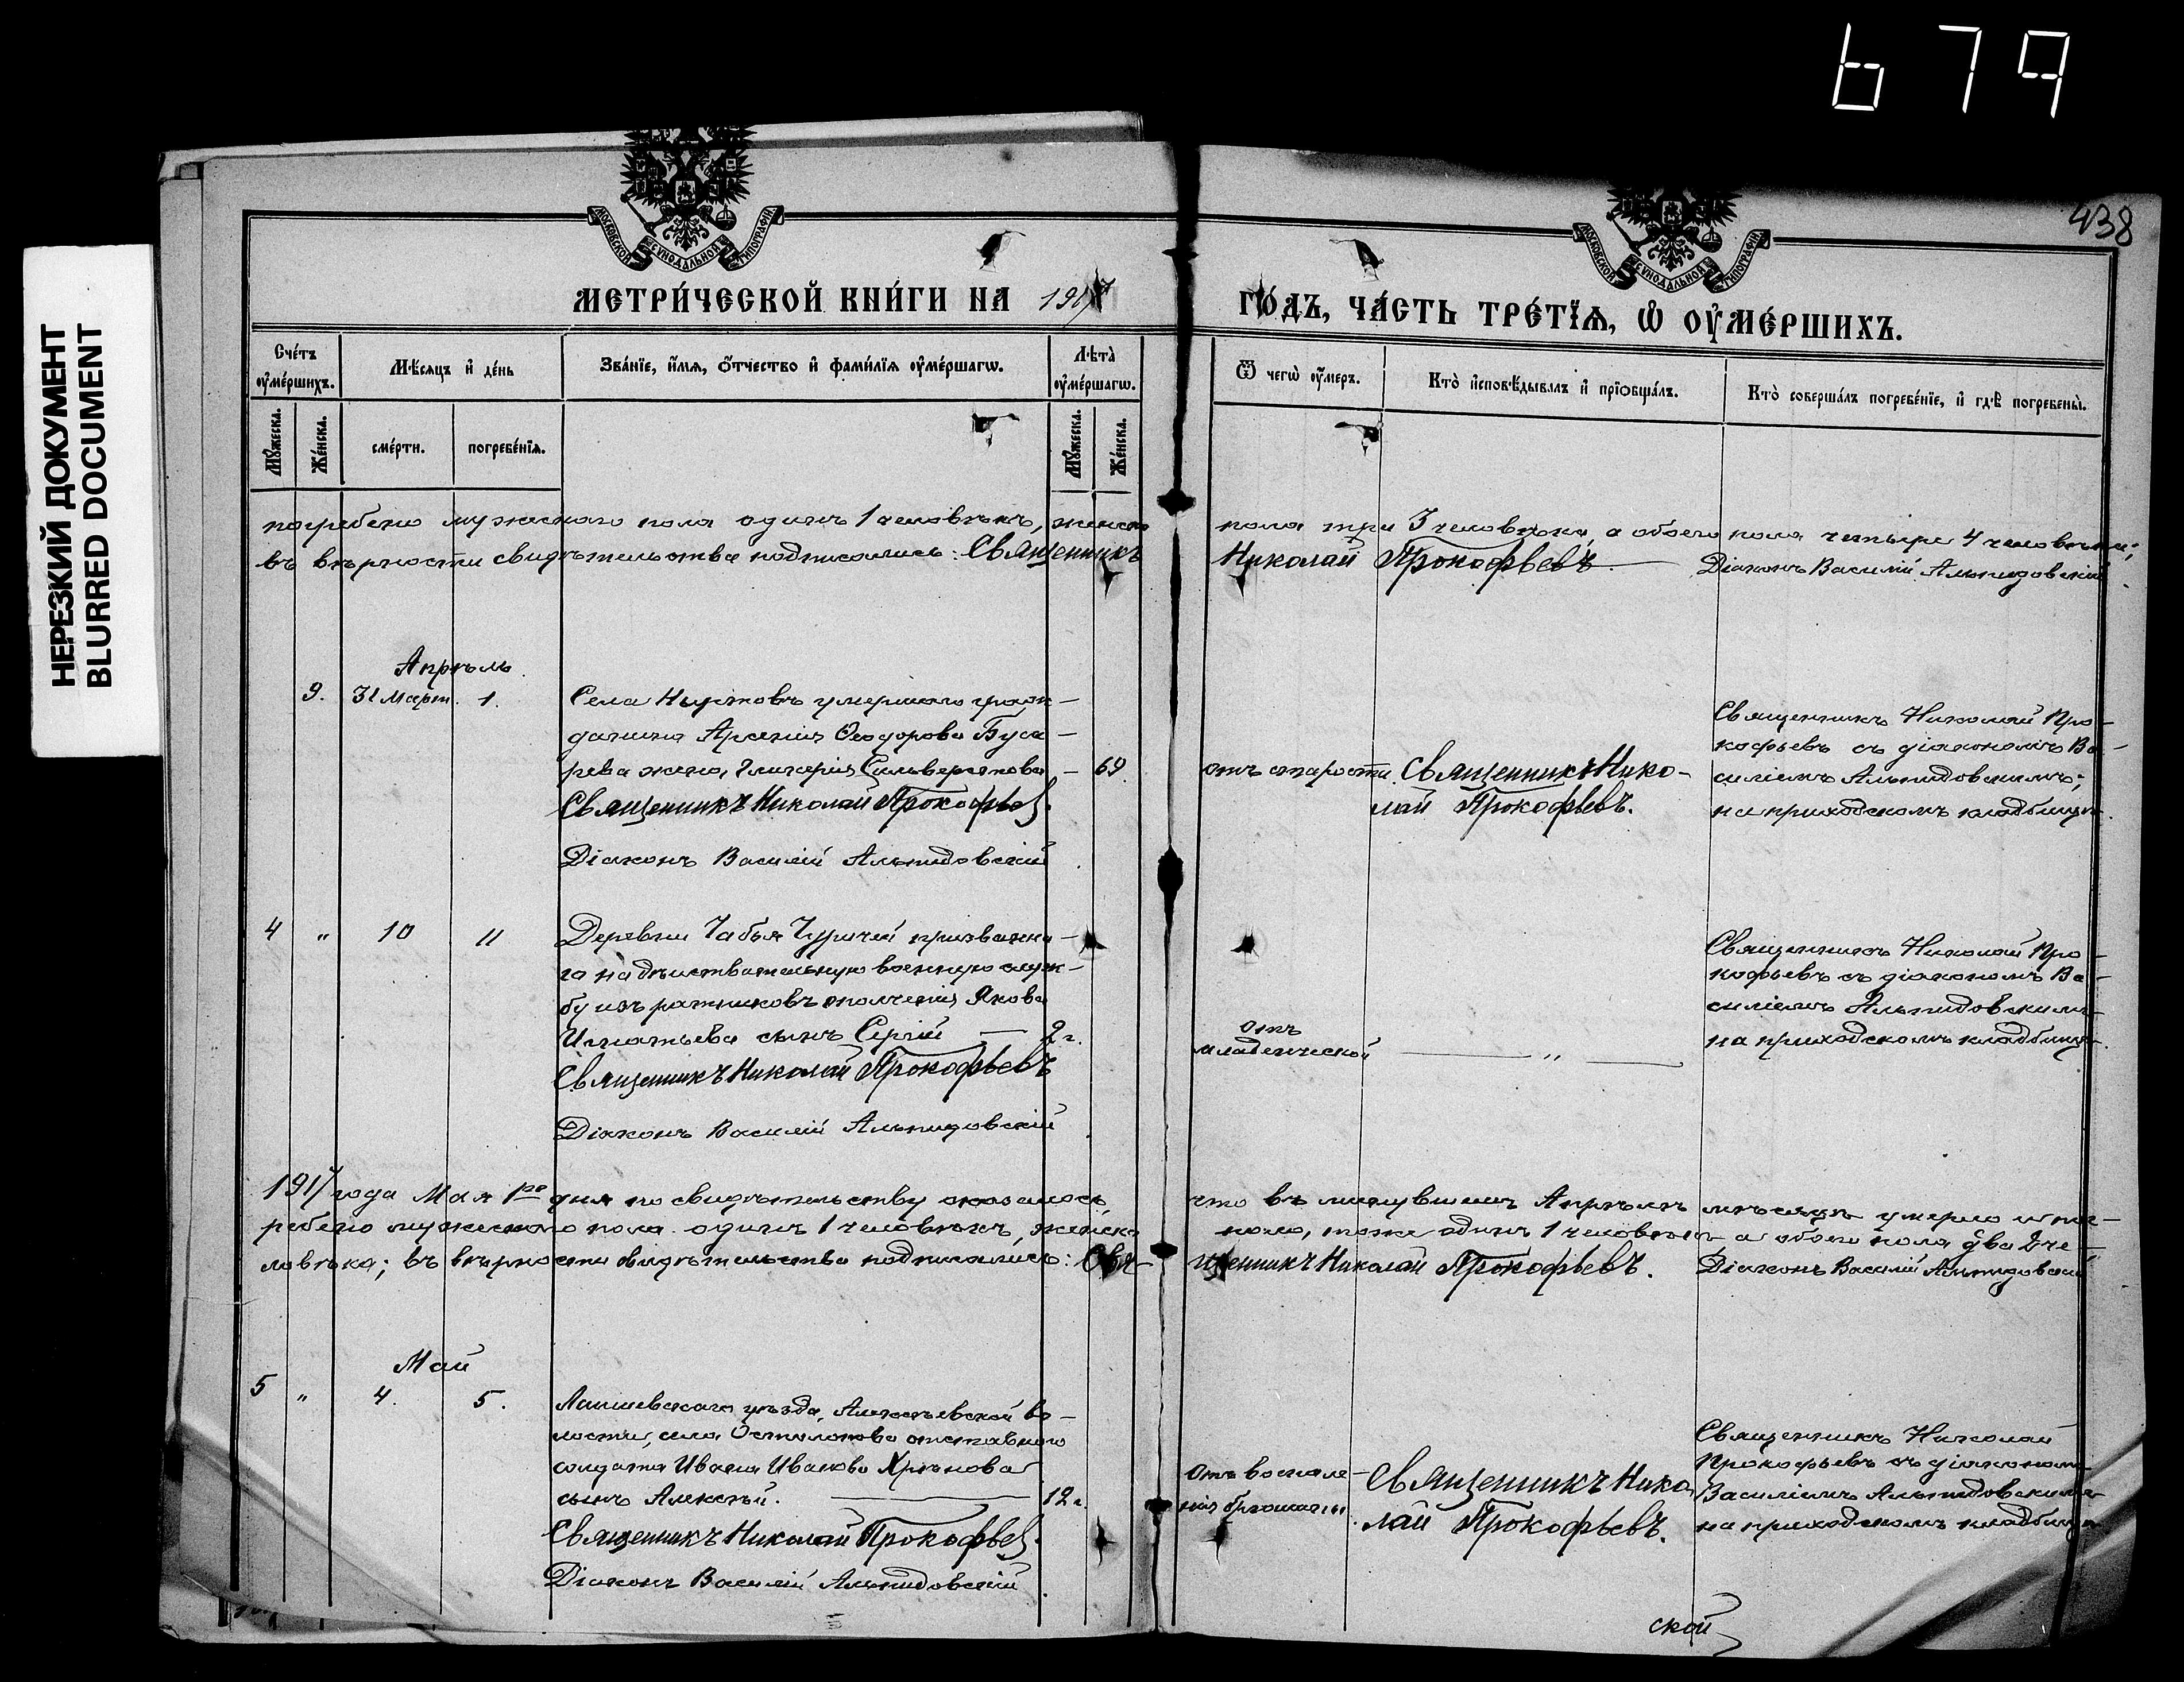 679
НЕРЕЗКИЙ ДОКУМЕНТ
BLURRED DOCUMENT
438
МОСКОВСКОЙ СѴНОДАЛЬНОЙ ТИПОГРАФІИ
МОСКОВСКОЙ СѴНОДАЛЬНОЙ ТИПОГРАФІИ
МЕТРИ́ЧЕСКОЙ КНИ́ГИ НА 1917 ГО́ДЪ, ЧА́СТЬ ТРЕ́ТЇѦ, Ѡ ОУ҆МЕ́РШИХЪ.
Сче́тъ оу҆ме́ршихъ.
Мѣ́сяцъ и҆ де́нь
Зва́нїе, и҆́мя, ѻ҆́тчество и҆ фами́лїя оу҆ме́ршагѡ.
Лѣ́та оу҆ме́ршагѡ.
Ѿ чегѡ̀ оу҆́меръ.
Кто̀ и҆сповѣ́дывалъ и҆ прїѻбща́лъ.
Кто̀ соверша́лъ погребе́нїе, и҆ гдѣ̀ погребены̀.
Мꙋ́жеска.
Же́нска.
сме́рти.
погребе́нїя.
Мꙋ́жеска.
Же́нска.
погребено мужескаго пола одинъ 1 человѣкъ, женска пола три 3 человѣка, а обоего пола четыре 4 человѣка;
въ вѣрности свидѣтельства подписались: Священникъ Николай Прокофьевъ Діаконъ Василій Альпидовскій
Апрѣль
9. 31 Март. 1.
Села Ныртовъ умершаго граж-
данина Арсенія Ѳеодорова Буса-
рева жена, Гликерія Сильверстова — 69.
Священникъ Николай Прокофьев.
Діаконъ Василій Альпидовскій
отъ старости
Священникъ Нико-
лай Прокофьевъ.
Священникъ Николай Про-
кофьевъ съ діакономъ Ва-
силіемъ Альпидовскимъ;
на приходскомъ кладбищѣ.
4 " 10 11
Деревни Чабья Чурчей призванна-
го на дѣйствительную военную служ-
бу изъ ратниковъ ополченія Якова
Игнатьева сынъ Сергій — 2 г.
Священникъ Николай Прокофьевъ
Діаконъ Василій Альпидовскій
отъ
младенческой
— " —
Священникъ Николай Про-
кофьевъ съ діакономъ Ва-
силіемъ Альпидовскимъ
на приходскомъ кладбищѣ.
1917 года Мая 1го дня по свидѣтельству оказалось что въ минувшемъ Апрѣлѣ мѣсяцѣ умерло и пог-
ребено мужескаго пола одинъ 1 человѣкъ, женска пола, тоже одинъ 1 человѣкъ а обоего пола два 2 че-
ловѣка; въ вѣрности свидѣтельства подписались: Свя-щенникъ Николай Прокофьевъ. Діаконъ Василій Альпидовскій
Май
5 " 4. 5.
Лаишевскаго уѣзда, Алексѣевской во-
лости, села Остолопова отставного
солдата Ивана Иванова Хрѣнова
сынъ Алексѣй. — 12 г.
Священникъ Николай Прокофьев.
Діаконъ Василій Альпидовскій
Отъ воспале-
нія брюшины.
Священникъ Нико
лай Прокофьевъ.
Священникъ Николай
Прокофьевъ съ діакономъ
Василіемъ Альпидовскимъ
на приходскомъ кладбищѣ
ской